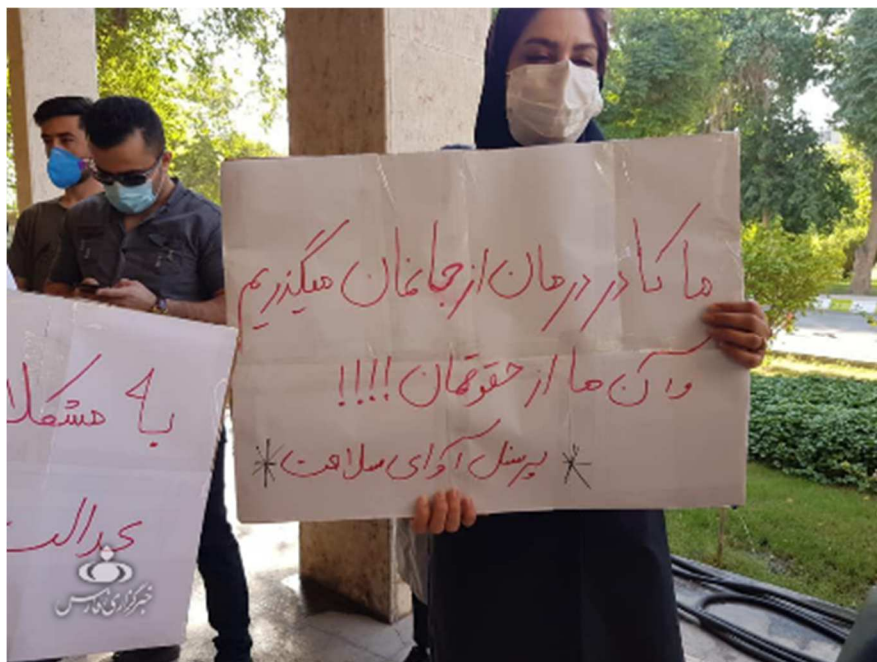 ما کادر درمان از جانمان میگذریم
و آن ها از حقوقمان !!!!
* پرسنل آوای سلامت *
به مشکلا
عدالت
خبرگزاری فارس